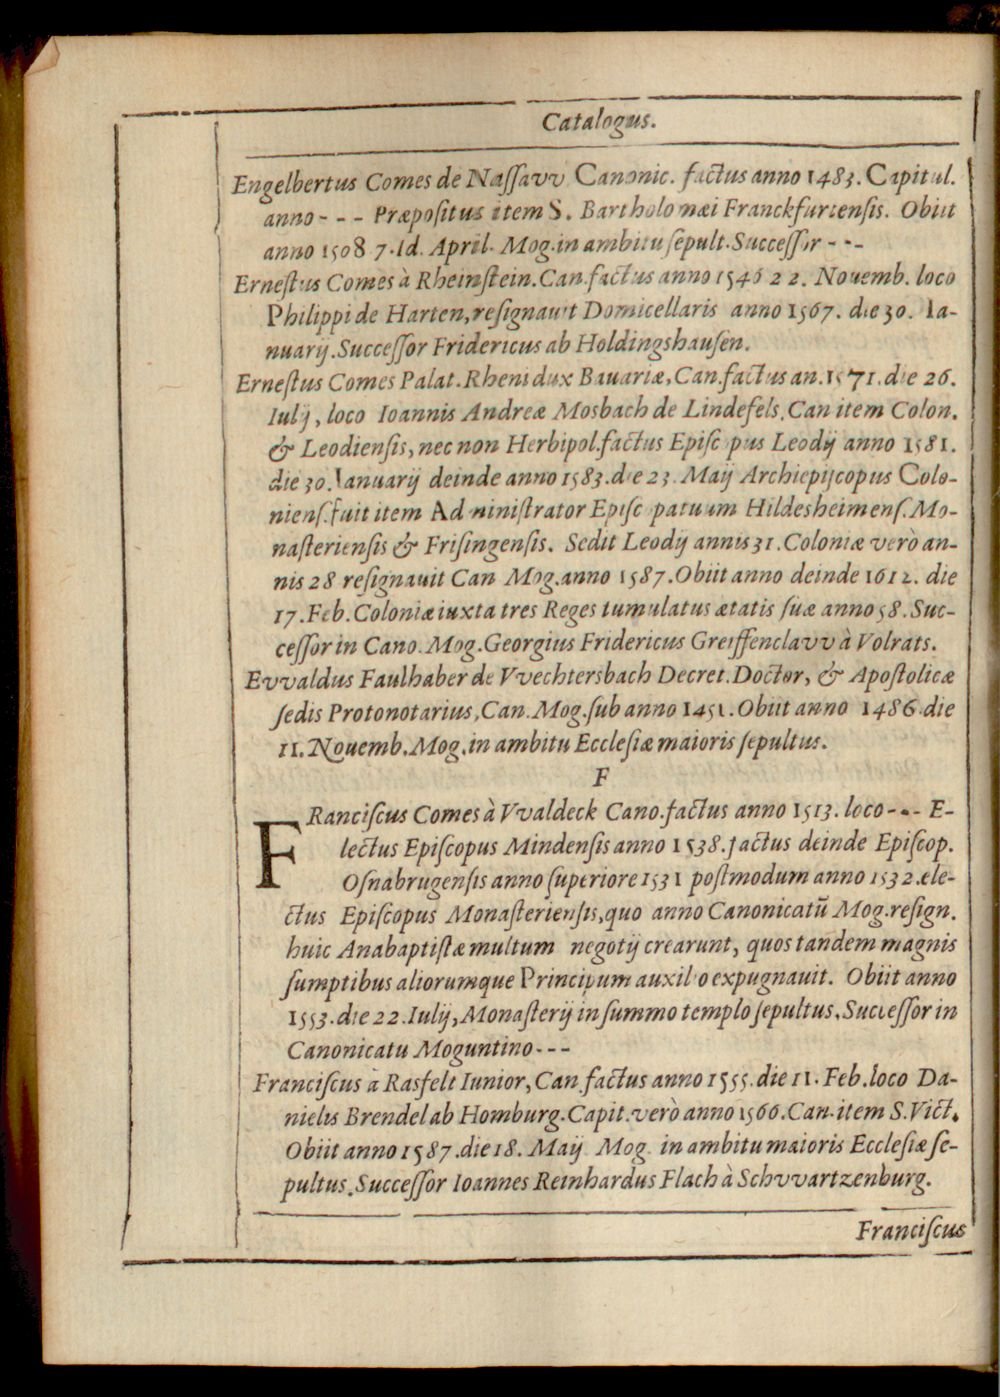 Catalogus.
Engelbertus Comes de Naſſavv Canonic. factus anno 1483. Capitul.
anno - - - Præpoſitus item S. Bartholomæi Franckfurtenſis. Obiit
anno 1508 7. Id. April. Mog. in ambitu ſepult. Succeſſor - - -
Erneſtus Comes à Rheinſtein. Can. factus anno 1546 22. Nouemb. loco
Philippi de Harten, reſignauit Domicellaris anno 1567. die 30. Ia-
nuarij. Succeſſor Fridericus ab Holdingshauſen.
Erneſtus Comes Palat. Rheni dux Bauariæ, Can. factus an. 1571. die 26.
Iulij, loco Ioannis Andreæ Mosbach de Lindefels. Can item Colon.
& Leodienſis, nec non Herbipol. factus Epiſc pus Leodij anno 1581.
die 30. Ianuarij deinde anno 1583. die 23. Maij Archiepiſcopus Colo-
nienſ. fuit item Ad niniſtrator Epiſc patuum Hildesheimenſ. Mo-
naſterienſis & Friſingenſis. Sedit Leodij annis 31. Coloniæ verò an-
nis 28 reſignauit Can Mog. anno 1587. Obiit anno deinde 1612. die
17. Feb. Coloniæ iuxta tres Reges tumulatus ætatis ſuæ anno 58. Suc-
ceſſor in Cano. Mog. Georgius Fridericus Greiffenclavv à Volrats.
Evvaldus Faulhaber de Vvechtersbach Decret. Doctor, & Apoſtolicæ
ſedis Protonotarius, Can. Mog. ſub anno 1451. Obiit anno 1486 die
11. Nouemb. Mog. in ambitu Eccleſiæ maioris ſepultus.
F
FRanciſcus Comes à Vvaldeck Cano. factus anno 1513. loco - - - E-
lectus Epiſcopus Mindenſis anno 1538. factus deinde Epiſcop.
Oſnabrugenſis anno ſuperiore 1531 poſtmodum anno 1532. ele-
ctus Epiſcopus Monaſterienſis, quo anno Canonicatū Mog. reſign.
huic Anabaptiſtæ multum negotij crearunt, quos tandem magnis
ſumptibus aliorumque Principum auxil o expugnauit. Obiit anno
1553. die 22. Iulij, Monaſterij in ſummo templo ſepultus. Succeſſor in
Canonicatu Moguntino - - -
Franciſcus à Rasfelt Iunior, Can. factus anno 1555. die 11. Feb. loco Da-
nielis Brendel ab Homburg. Capit. verò anno 1566. Can. item S. Vict.
Obiit anno 1587. die 18. Maij Mog. in ambitu maioris Eccleſiæ ſe-
pultus. Succeſſor Ioannes Reinhardus Flach à Schvvartzenburg.
Franciſcus